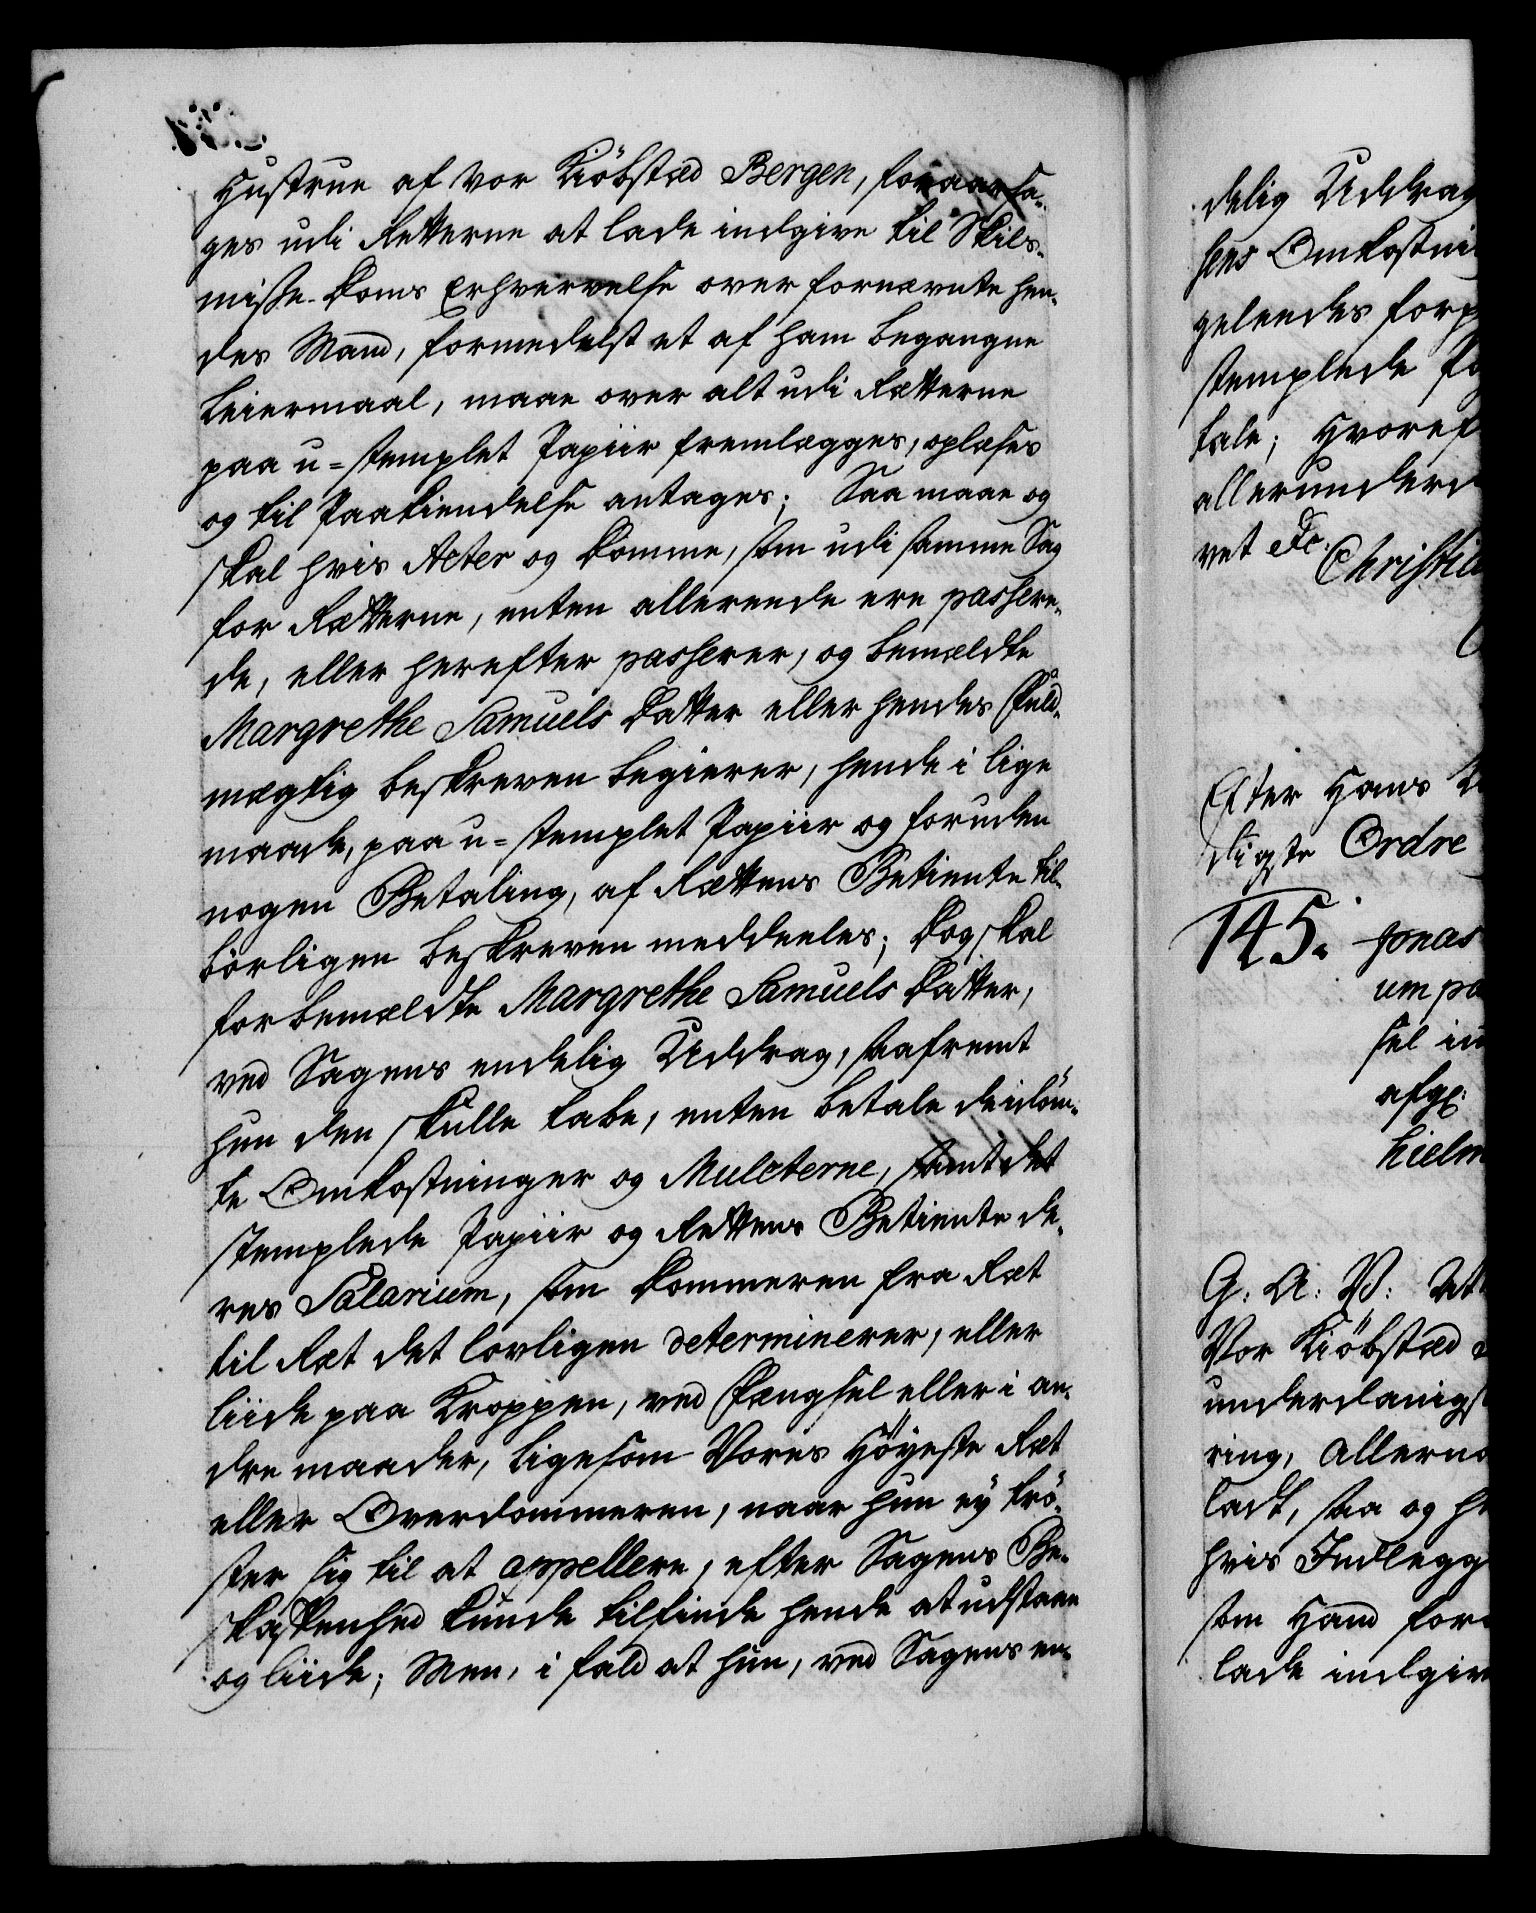 Hustrue af vor Kiöbstæd Bergen, foraarsa-
ges udi Retterne at lade indgive til Skils-
misse-Doms Erhvervelse over fornævnte hen-
des Mand, formedelst et af ham begangne
Leiermaal, maae over alt udi Rætterne
paa u-stemplet Papiir fremlægges, oplæses
og til Paakiendelse antages; Saa maae og
skal hvis Acter og Domme, som udi samme Sag
for Rætterne, enten allereede ere passere-
de, eller herefter passerer, og bemældte
Margrethe Samuels Datter eller hendes Fuld-
mægtig beskreven begierer, hende i lige
maade, paa u-stemplet Papiir og foruden
nogen Betaling, af Rættens Betiente til-
börligen beskreven meddeeles; Dog skal
forbemældte Margrethe Samuels Datter,
ved Sagens endelig Uddrag, saafremt
hun den skulle tabe, enten betale de idöm-
te Omkostninger og Mulcterne, samt det
stemplede Papiir og Rettens Betiente de-
res Salarium, som Dommeren fra Ræt
til Ræt det lovligen determinerer, eller
liide paa Kroppen, ved Fængsel eller i an-
dre maader, ligesom Vores Höyeste Ræt
eller Overdommeren, naar hun ey trö-
ster sig til at appellere, efter Sagens Be-
skaffenhed kunde tilfinde hende at udstaae
og liide; Men, i fald at hun, ved Sagens en-
delig Uddrag
sens Omkostni
gelendes for
stemplede
tale; Hvoref
allerunderd
vet &c.
Christia
Efter Hans
digste Ordre
145. Jonas
um pa
sel in
afg:
hielm
G: A: V:
Vor Kiöbstæd
underdanigs
ring, allerna
ladt, saa og h
hvis Indlegg
som Hand for
lade indgiv